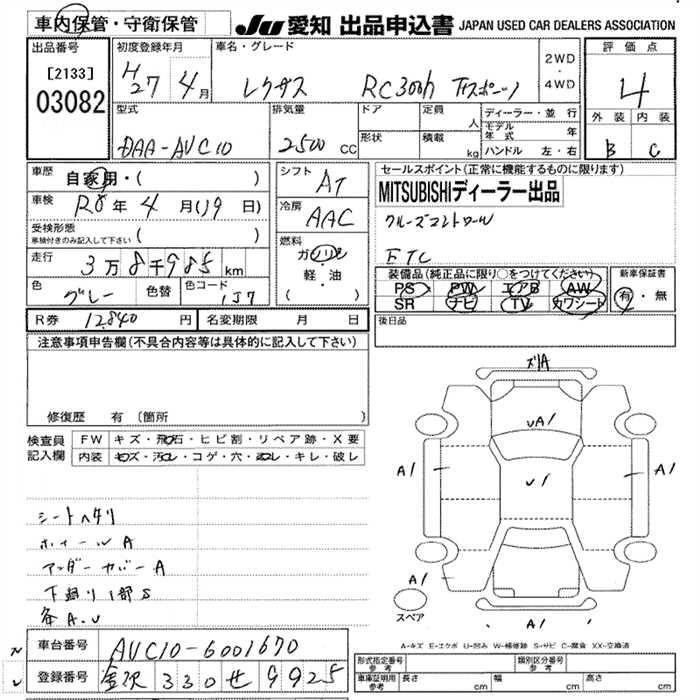 車内保管・守衛保管
JU 愛知 出品申込書 JAPAN USED CAR DEALERS ASSOCIATION
出品番号
[2133]
03082
初度登録年月
H27 4月
車名・グレード
レクサス RC300h Fスポーツ
2WD
・
4WD
評価点
4
外装 内装
B C
型式
DAA-AVC10
排気量
2500 CC
ドア
形状
定員 人
積載 kg
ディーラー・並行
モデル年式 年
ハンドル 左・右
車歴
自家用・( )
車検
R8年 4月(19日)
受検形態
車検付きのみ記入して下さい ( )
走行
3万8千985 km
色
グレー
色替
色コード
1J7
シフト
AT
冷房
AAC
燃料
ガソリン
・
軽・油
( )
セールスポイント(正常に機能するものに限ります)
MITSUBISHIディーラー出品
クルーズコントロール
ETC
装備品(純正品に限り○をつけてください)
PS PW エアB AW
SR ナビ TV カワシート
新車保証書
有・無
R券 12,840 円
名変期限 月 日
後日品
注意事項申告欄(不具合内容等は具体的に記入して下さい)
修復歴 有 (箇所
検査員
記入欄
FW キズ・飛石・ヒビ割・リペア跡・X要
内装 キズ・汚れ・コゲ・穴・ヌレ・キレ・破レ
シートヘタリ
ホイールA
アンダーカバーA
下廻り1部S
各A.U
ズリA
UA1
U1
A1
A1
A1
A1
A1
スペア
A-キズ E-エクボ U-凹み W-補修跡 S-サビ C-腐食 XX-交換済
車台番号
AVC10-6001670
登録番号
金沢 330 せ 9925
形式指定番号
参考
類別区分番号
参考
車庫証明用
参考
長さ cm
幅 cm
高さ cm